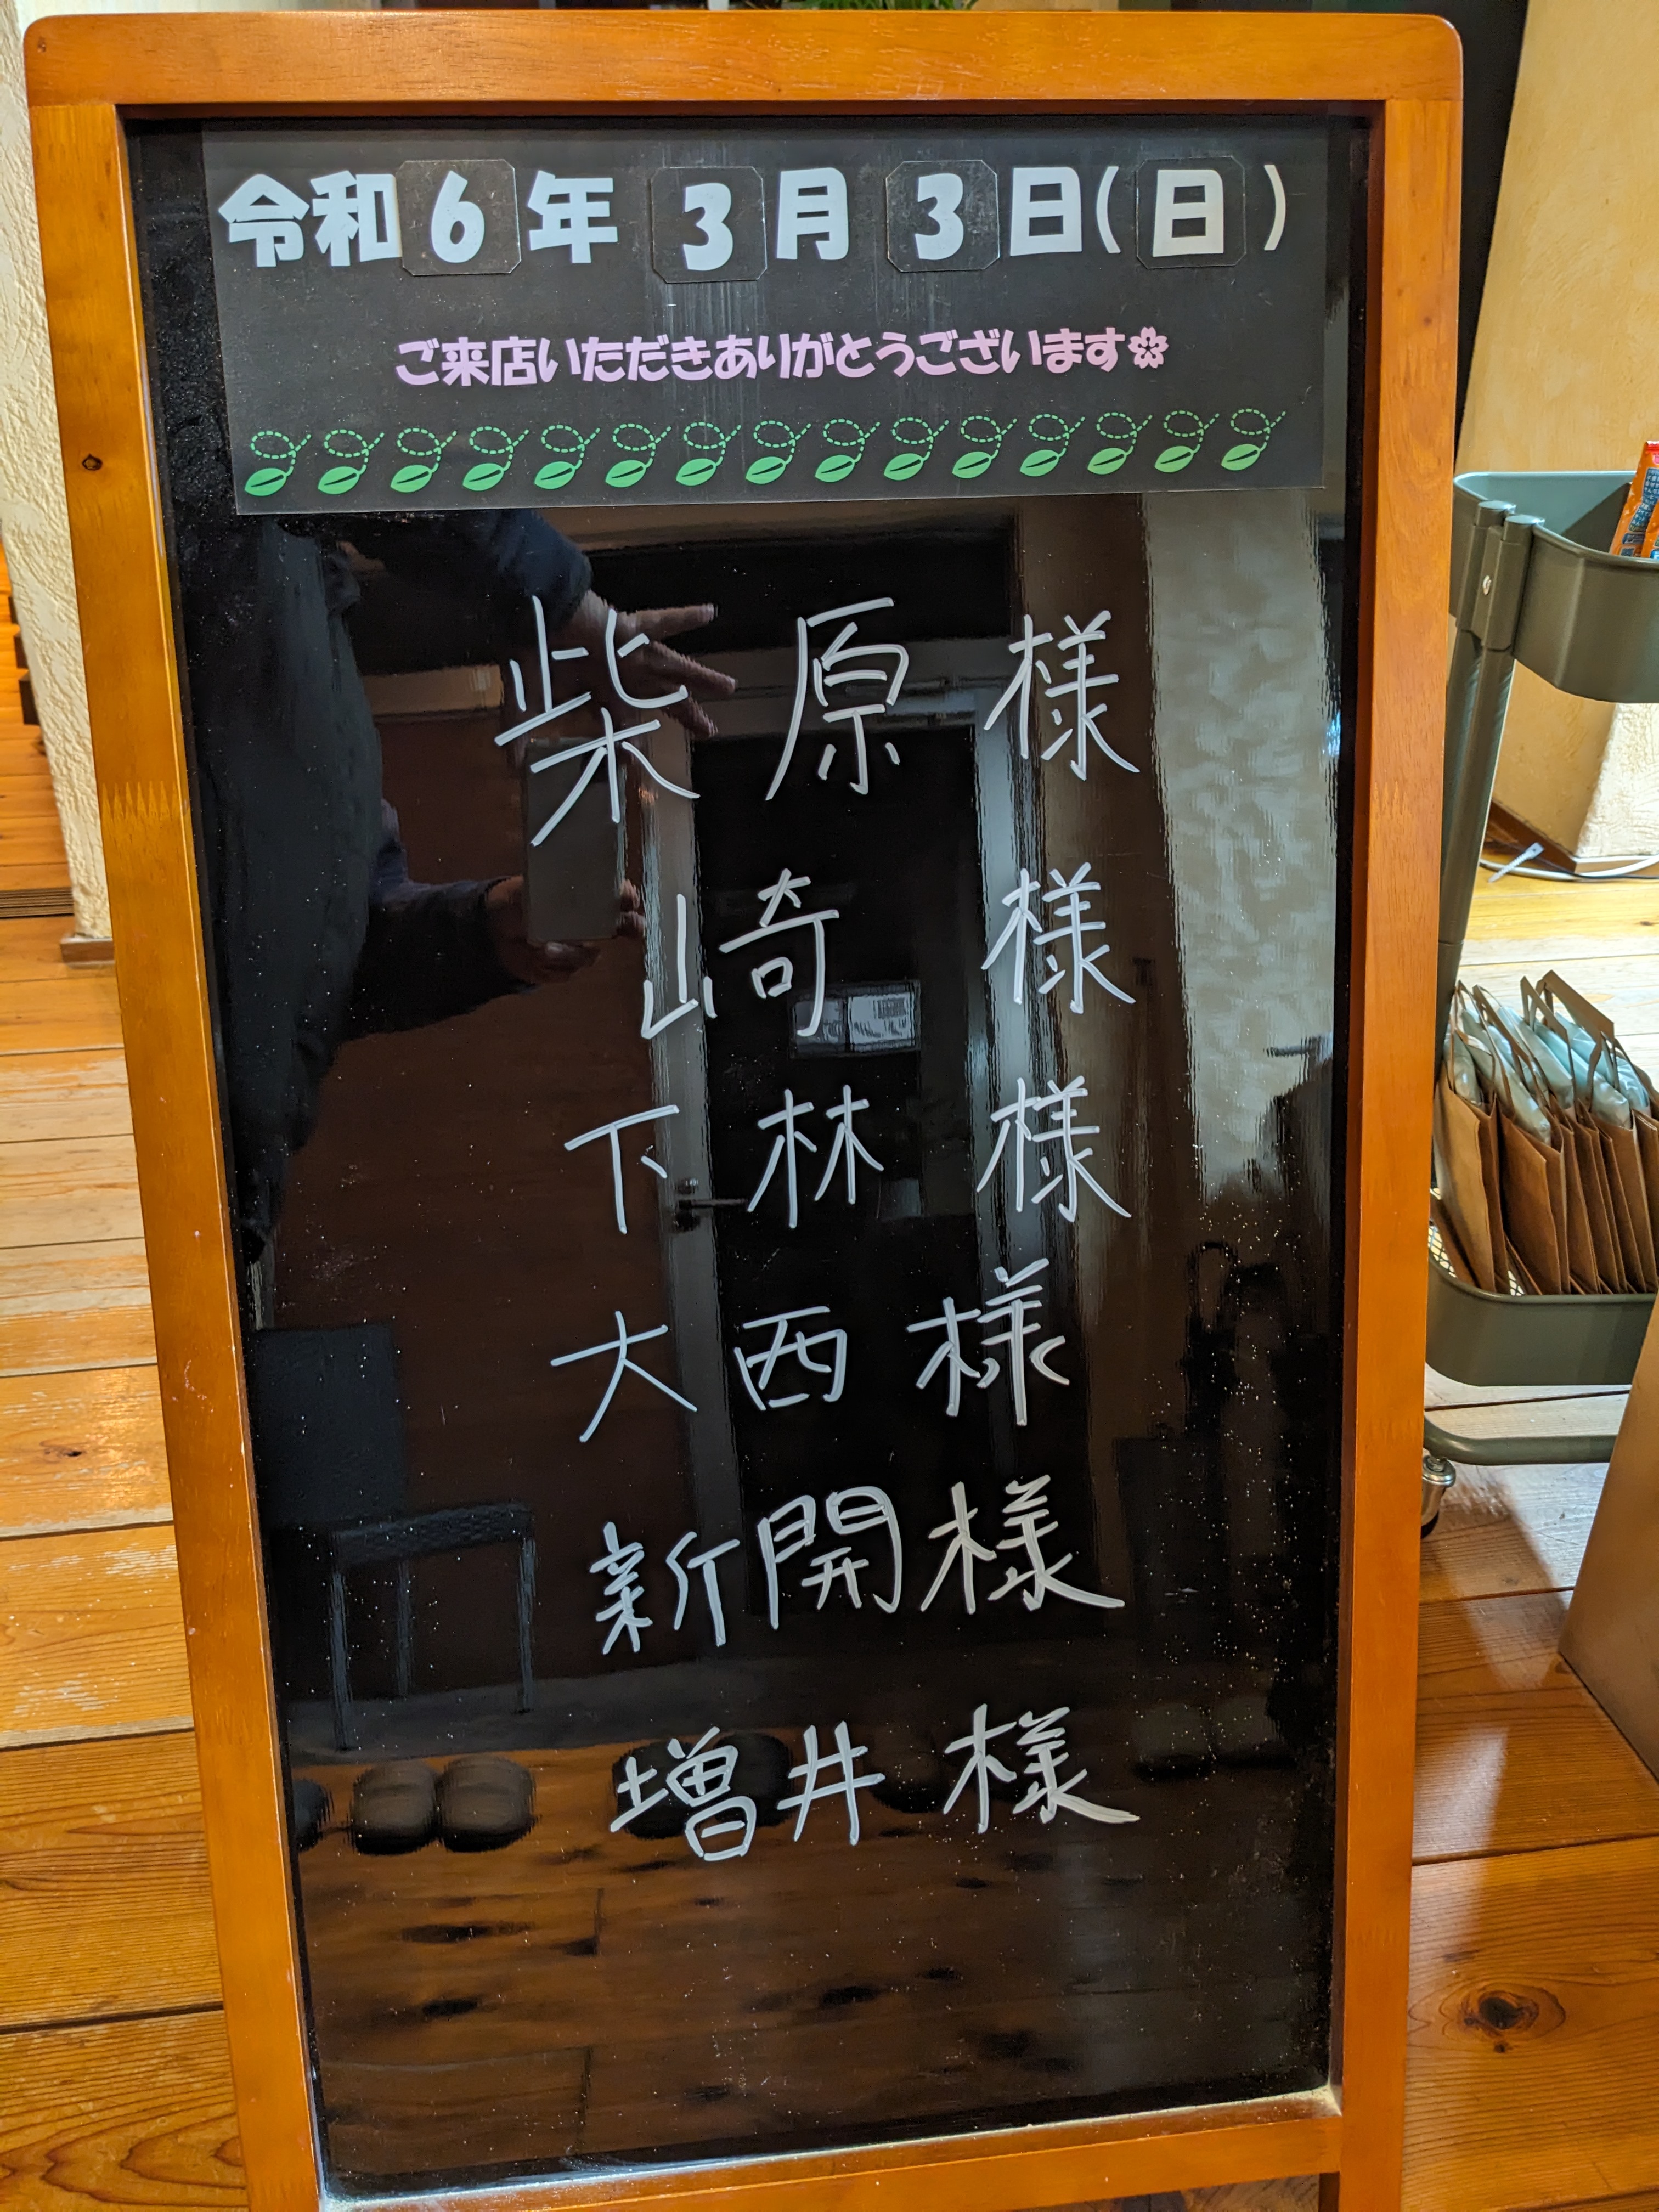 令和6年 3月 3日(日)
ご来店いただきありがとうございます
柴原様
崎様
下林様
大西様
新開様
増井様